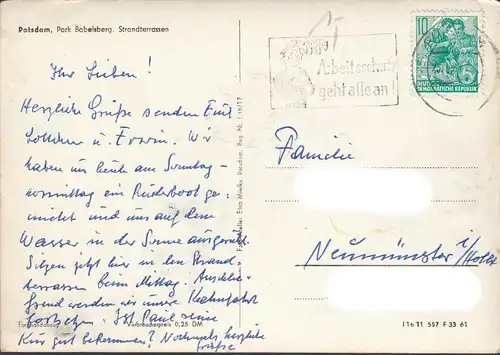 Potsdam, Park Babelsberg. Strandterrassen
Ihr Lieben!
Herzliche Grüße senden Euch
Lottchen u. Erwin. Wir
haben uns heute am Sonntag-
vormittag ein Ruderboot ge-
mietet und uns auf dem
Wasser in der Sonne ausgeruht.
Sitzen jetzt hier in den Strand-
terrassen beim Mittag. Anschlie-
ßend werden wir unsere Kahnfahrt
fortsetzen. Ist Paul seine
Kur gut bekommen? Nochmals herzliche
Grüße
Fotohandabzug
Verbraucherpreis 0,25 DM
Potsdam, Reg.-Nr. I/16/17
Arbeitsschutz
geht alle an!
10
DEUTSCHE
DEMOKRATISCHE REPUBLIK
Familie
Neumünster i/Holst
I 16 11 557 F 33 61